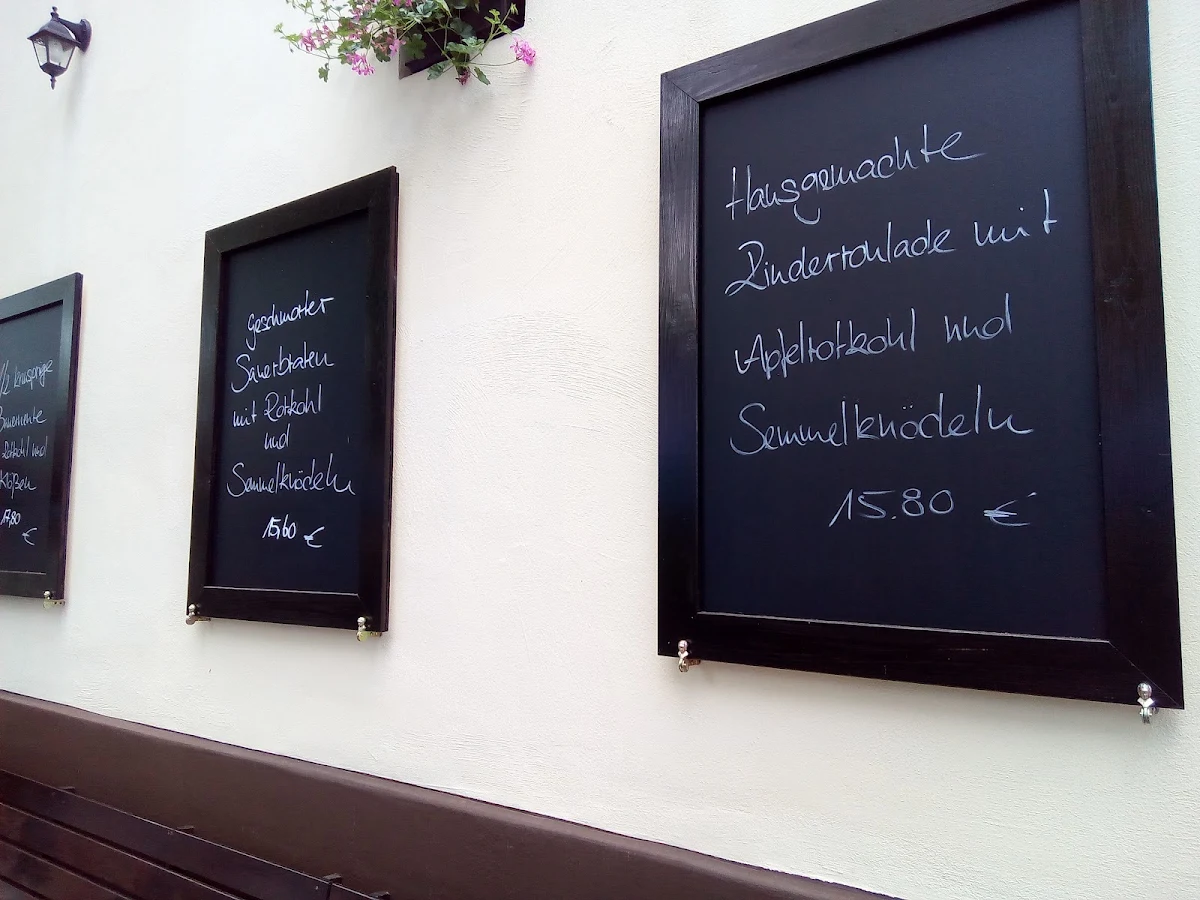 1/2 knusprige
Bauernente
Rotkohl und
Klößen
17,80
€
geschmorter
Sauerbraten
mit Rotkohl
und
Semmelknödeln
15,60 €
Hausgemachte
Rinderroulade mit
Apfelrotkohl und
Semmelknödeln
15.80 €